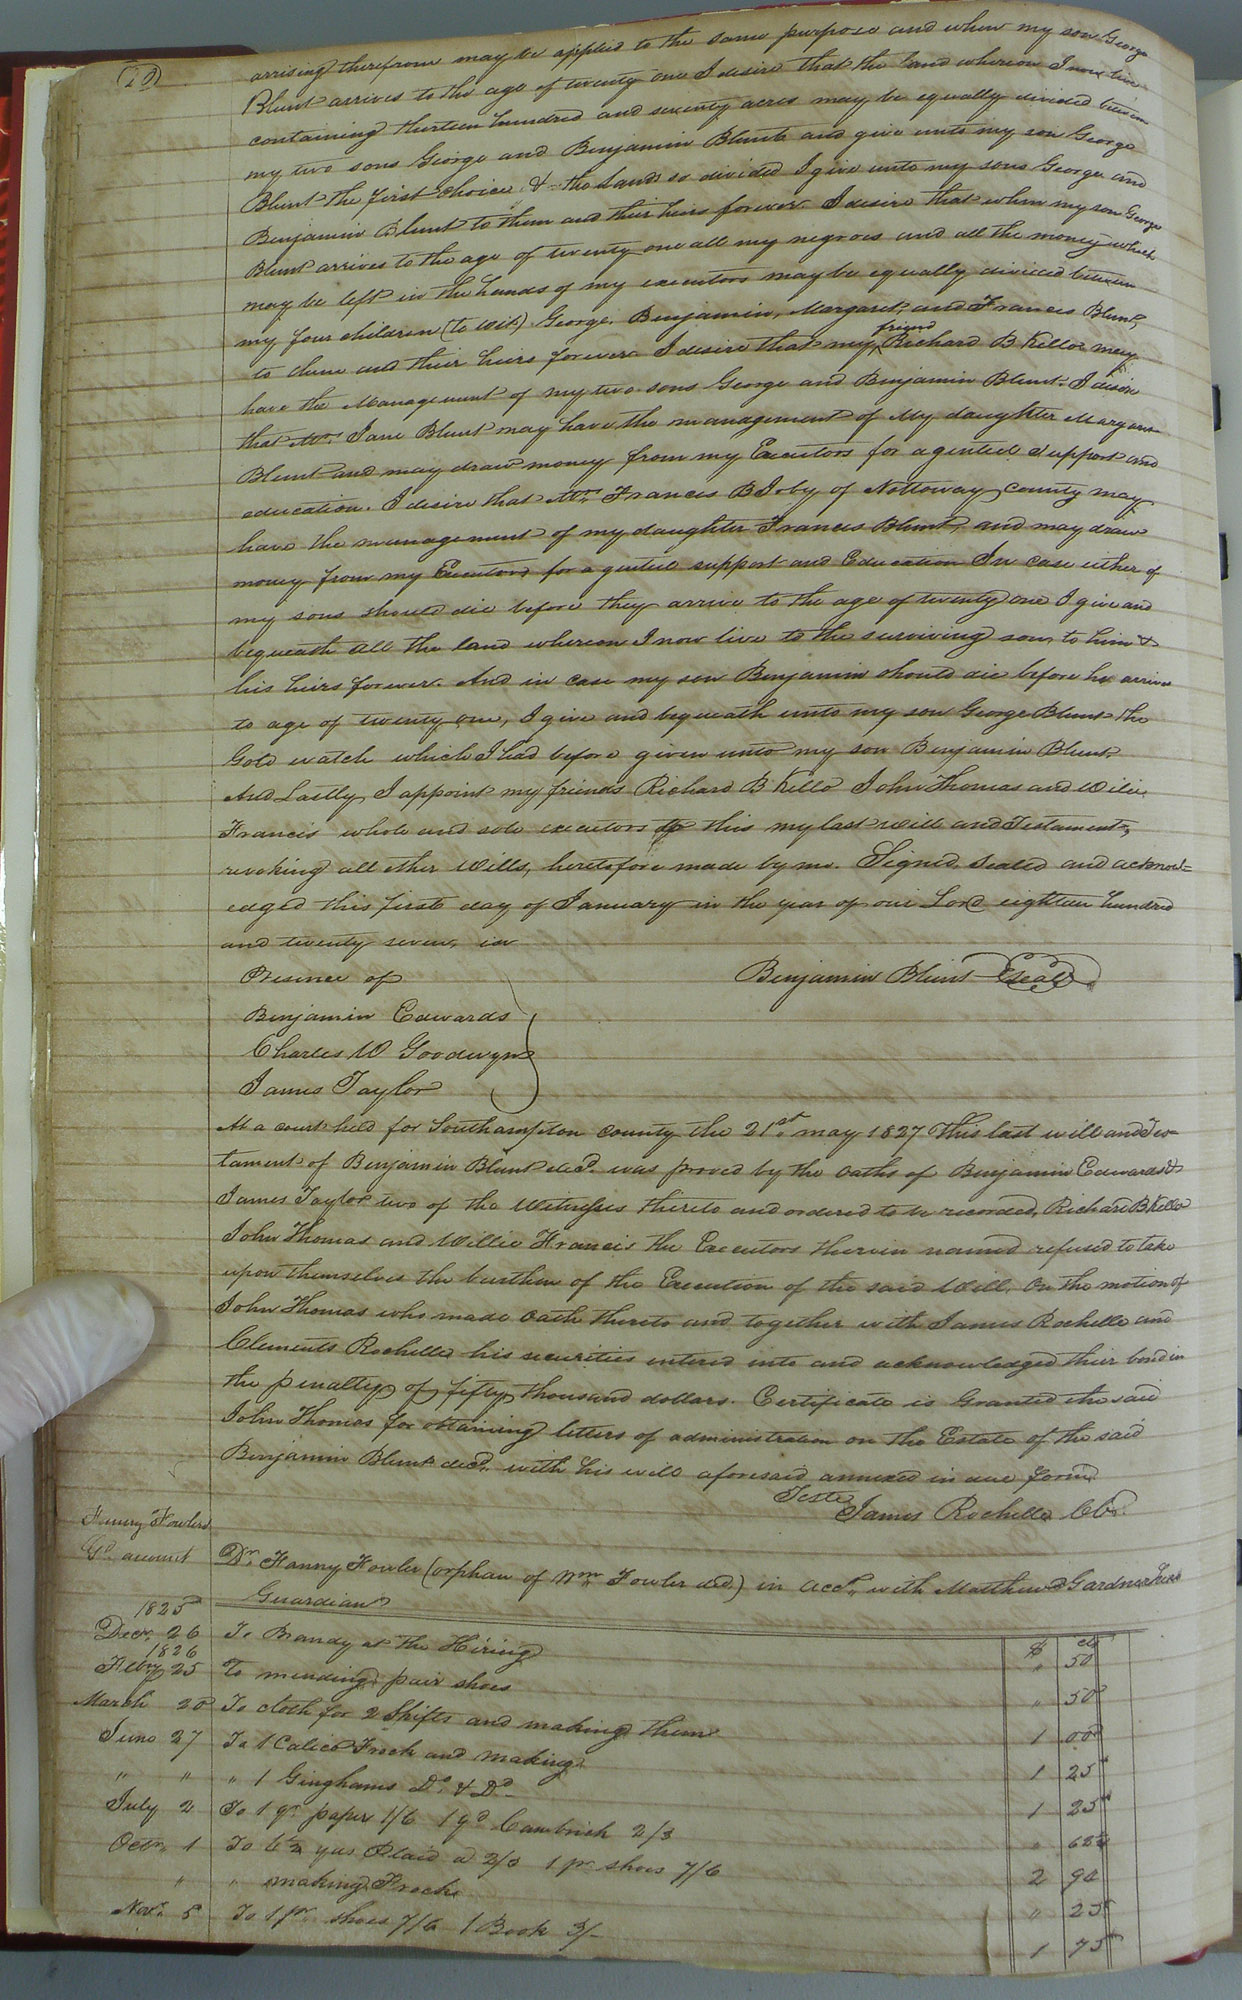 arrising therefrom may be applied to the same purpose and when my son George
Blunt arrives to the age of twenty one I desire that the land whereon I now live
containing thirteen hundred and seventy acres may be equally divided between
my two sons George and Benjamin Blunt and give unto my son George
Blunt the first choice & the land so divided I give unto my sons George and
Benjamin Blunt to them and their heirs forever. I desire that when my son George
Blunt arrives to the age of twenty one all my negroes and all the money which
may be left in the hands of my executors may be equally divided between
my four children (to wit) George, Benjamin, Margaret, and Frances Blunt,
to them and their heirs forever I desire that my friend Richard B Kello may
have the Management of my two sons George and Benjamin Blunt. I desire
that Mrs. Jane Blunt may have the management of My daughter Margaret
Blunt and may draw money from my Executors for a genteel support and
education. I desire that Mrs. Frances B Joby of Nottoway County may
have the management of my daughter Frances Blunt, and may draw
money from my Executors for a genteel support and Education In case either of
my sons should die before they arrive to the age of twenty one I give and
bequeath all the land whereon I now live to the surviving son, to him &
his heirs forever. And in case my son Benjamin should die before he arrive
to age of twenty one, I give and bequeath unto my son George Blunt the
Gold watch which I had before given unto my son Benjamin Blunt.
And Lastly I appoint my friends Richard B Kello John Thomas and Willie
Francis whole and sole executors to this my last will and Testament,
revoking all other Wills, heretofore made by me. Signed, Sealed and acknowl=
edged this first day of January in the year of our Lord eighteen hundred
and twenty seven, in
Presence of
Benjamin Blunt Seal
Benjamin Edwards
Charles W Goodwyn
James Taylor
At a court held for Southampton County the 21st. may 1827 This last will and Tes-
tament of Benjamin Blunt decd. was proved by the oaths of Benjamin Edwards &
James Taylor two of the Witnesses thereto and ordered to be recorded, Richard B Kello
John Thomas and Willie Francis the Executors therein named refused to take
upon themselves the burthen of the Execution of the said Will. On the motion of
John Thomas who made Oath thereto and together with James Rochelle and
Clements Rochelle his securities entered into and acknowledged their bond in
the penalty of fifty thousand dollars. Certificate is Granted the said
John Thomas for obtaining letters of administration on the Estate of the said
Benjamin Blunt decd. with his will aforesaid annexed in due form
Teste
James Rochelle Clk.
Fanny Fowlers
Gd. account
Dr. Fanny Fowler (orphan of Wm Fowler decd.) in acct. with Matthew Gardner
Guardian
$ cts
1825
Decr. 26 To Brandy at the Hiring " 50
1826
Feby 25 To mending pair shoes " 50
March 20 To cloth for 2 Shifts and making them 1 00
June 27 To 1 Calico Frock and making 1 25
" " " 1 Ginghams Do. & Do. 1 25
July 2 To 1 qr. paper 1/6 1 yd Cambrick 2/3 " 62½
Octr. 1 To 6½ yds Plaid a 2/3 1 pr shoes 7/6 2 94
" " making Frock " 25
Novr. 5 To 1 pr. shoes 7/6 1 Book 3/- 1 75